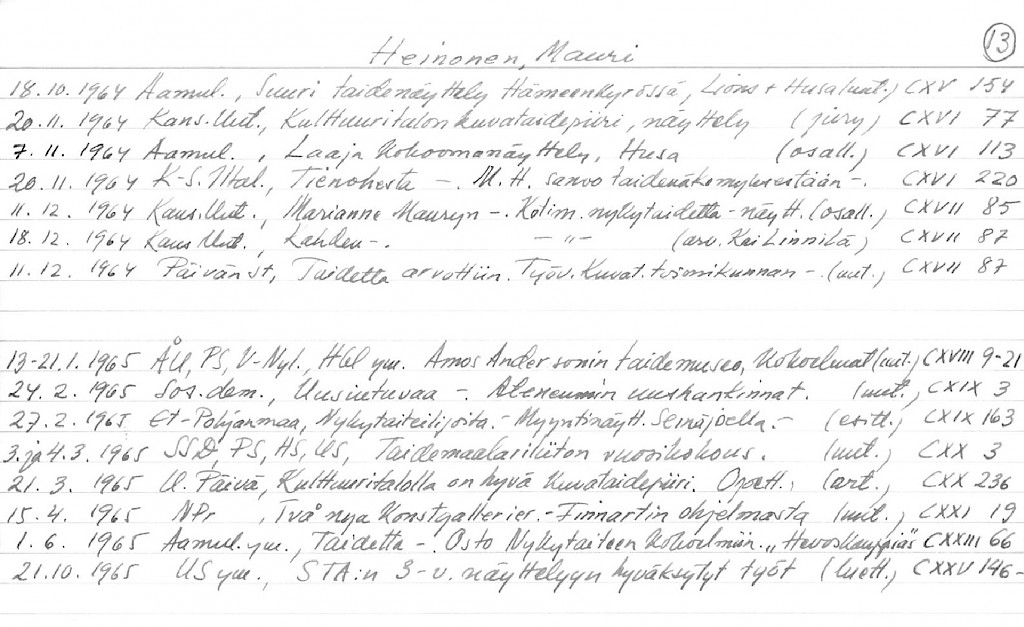 13
Heinonen, Mauri
18.10.1964 Aamul., Suuri taidenäyttely Hämeenkyrössä, Lions + Husa (uut.) CXV 154
20.11.1964 Kans.Uut., Kulttuuritalon kuvataidepiiri, näyttely (jury) CXVI 77
7.11.1964 Aamul., Laaja kokoomanäyttely, Husa (osall.) CXVI 113
20.11.1964 K-S. Iltal., Tienohesta -. M.H. sanoo taidenäkemyksestään -. CXVI 220
11.12.1964 Kans.Uut., Marianne Mauryn -. Kotim. nykytaidetta - näytt. (osall.) CXVII 85
18.12.1964 Kans Uut., Kahden -. -"- (arv. Kei Linnilä) CXVII 87
11.12.1964 Päivän S:t, Taidetta arvottiin. Työv. Kuvat. toimikunnan -. (uut.) CXVII 87
13-21.1.1965 ÅU, PS, V-Nyl., Hbl ym. Amos Andersonin taidemuseo, kokoelmat (uut.) CXVIII 9-21
24.2.1965 Sos.dem., Uusiutuvaa -. Ateneumin uushankinnat. (uut.) CXIX 3
27.2.1965 Et-Pohjanmaa, Nykytaiteilijoita. - Myyntinäytt. Seinäjoella. - (esitt.) CXIX 163
3. ja 4.3.1965 SSD, PS, HS, US, Taidemaalariliiton vuosikokous. (uut.) CXX 3
21.3.1965 U. Päivä, Kulttuuritalolla on hyvä kuvataidepiiri. Opett. (art.) CXX 236
15.4.1965 NPr, Två nya konstgallerier. - Finnartin ohjelmasta (uut.) CXXI 19
1.6.1965 Aamul. ym., Taidetta -. Osto Nykytaiteen kokoelmiin. "Hevoskauppias" CXXIII 66
21.10.1965 US ym., STA:n 3-v. näyttelyyn hyväksytyt työt (luett.) CXXV 146-